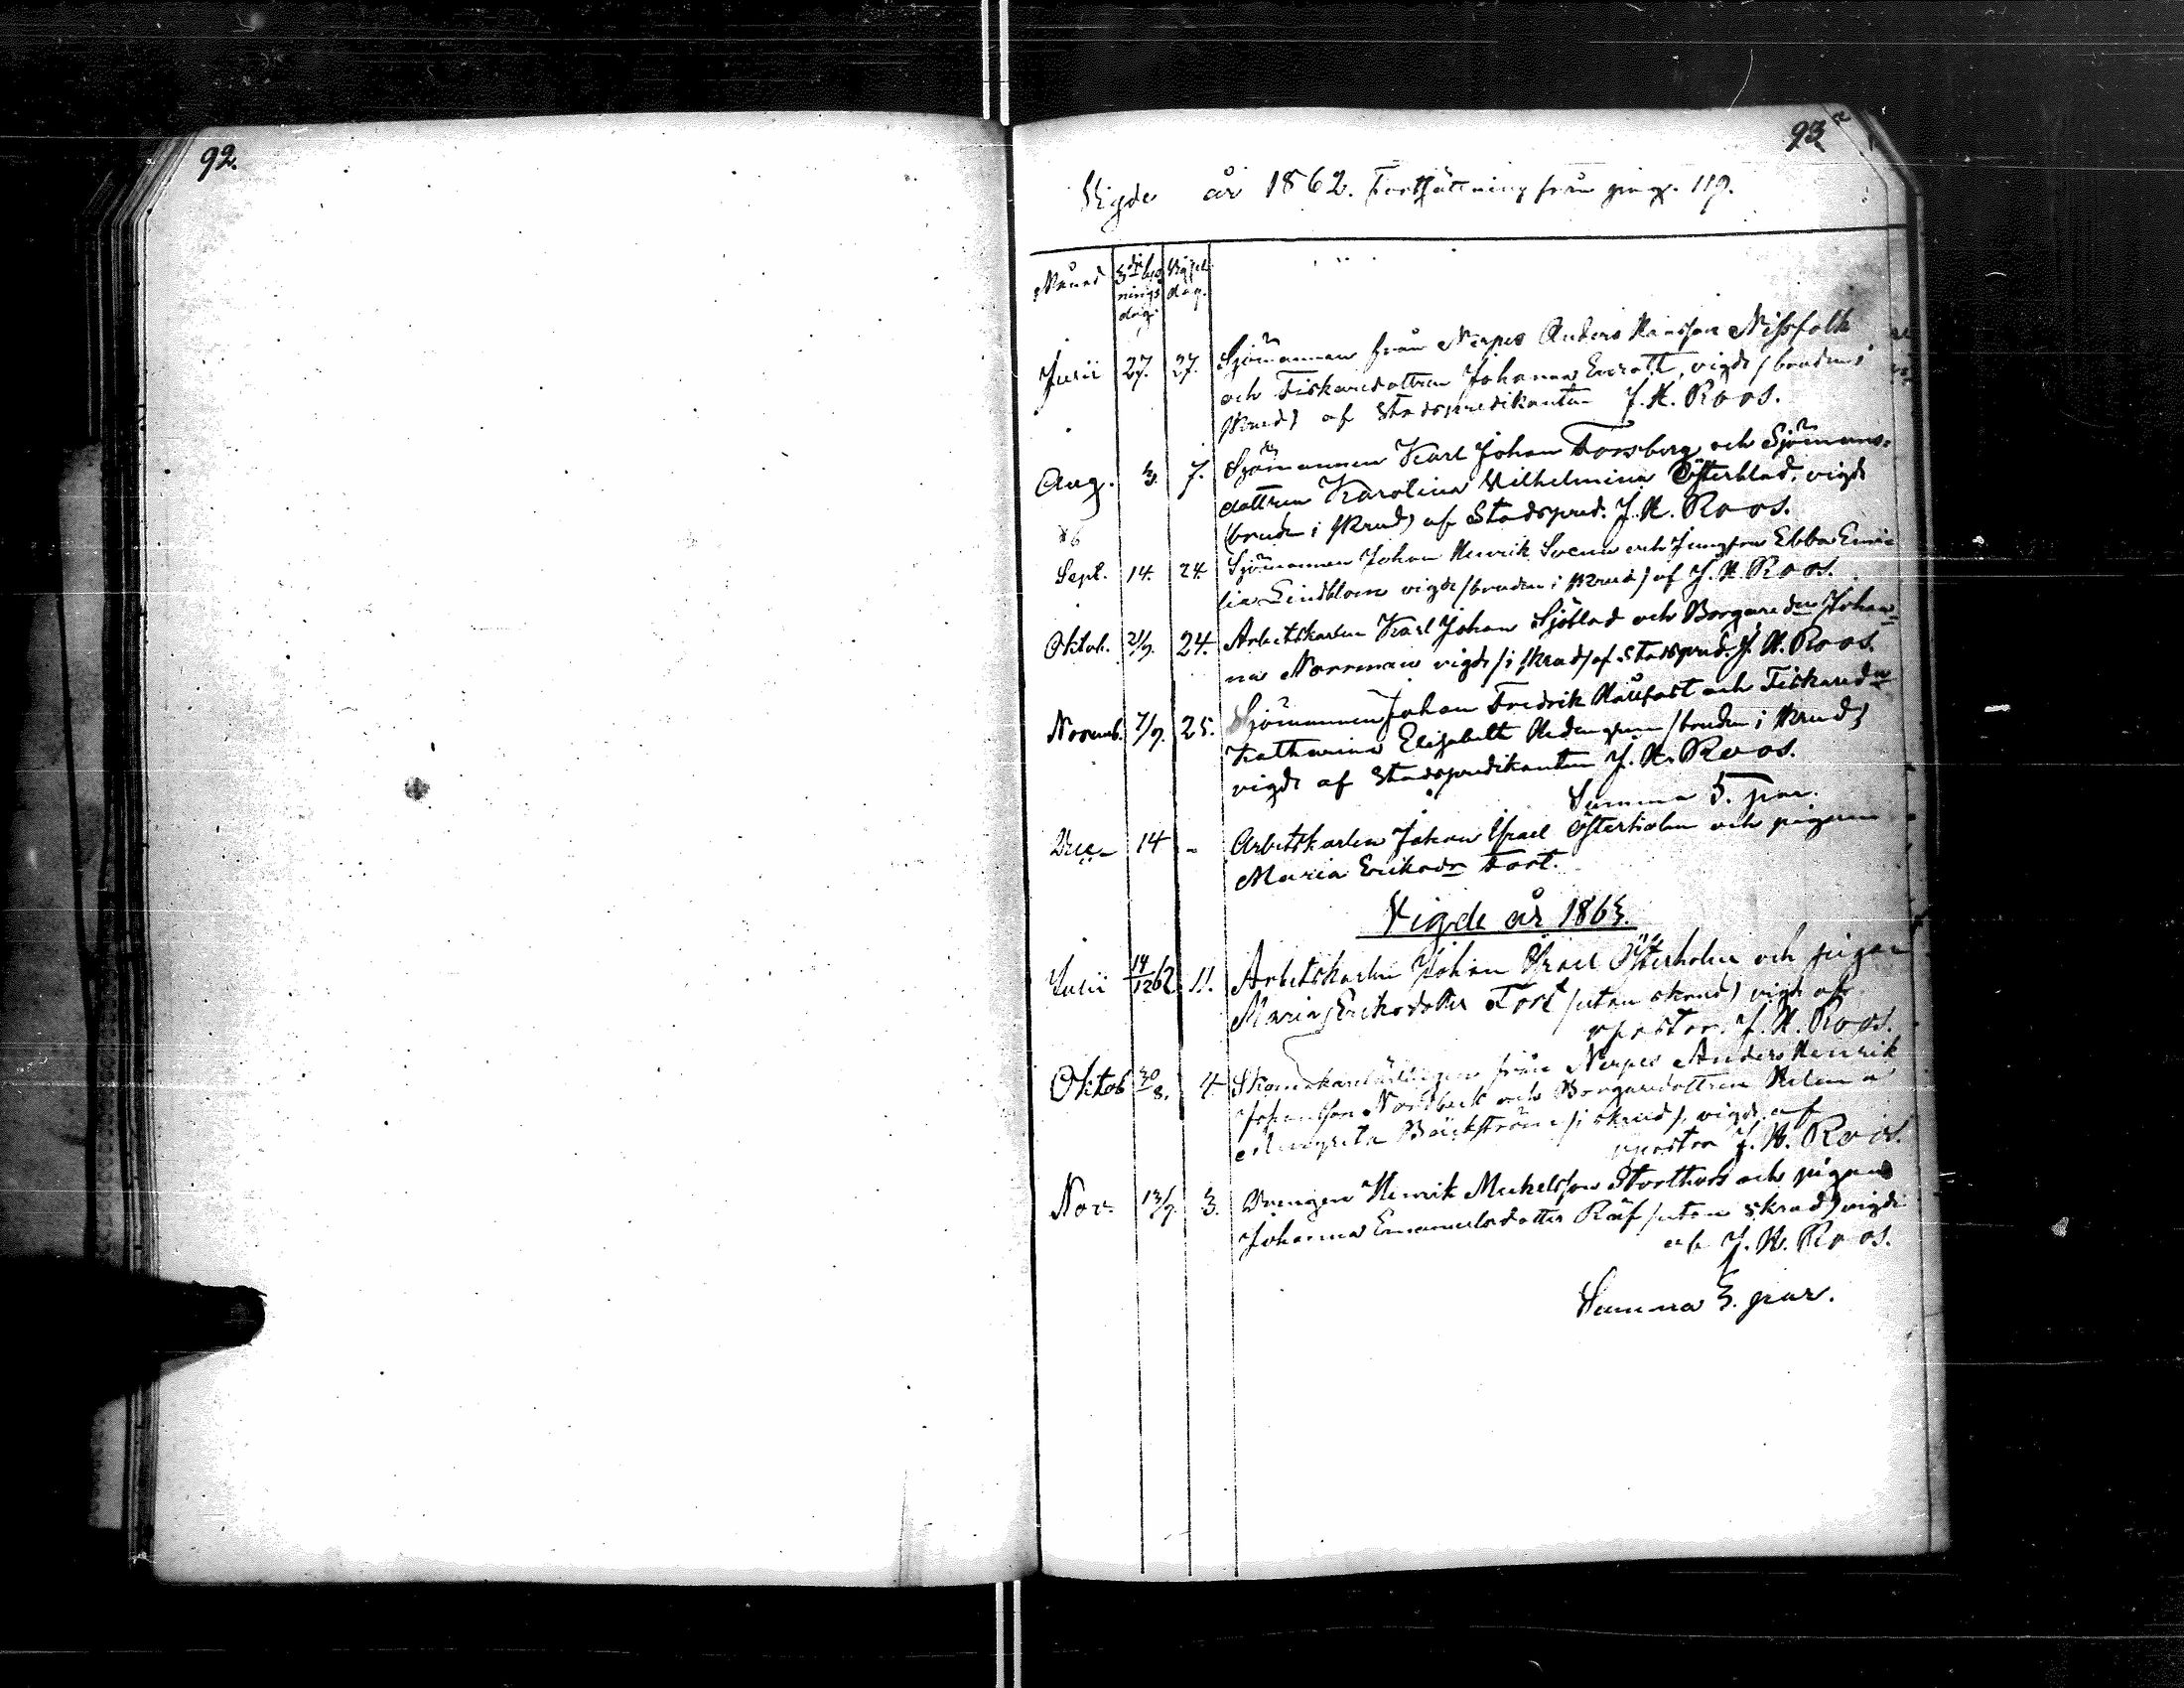 92.
93
Vigde år 1862. Fortsättning från pag. 119.
Månad 3dje lysnings dag. Vigsel dag.
Junii 27. 27. Sjömannen från Nerpes Anders Hansson Nissfolk
och Fiskaredottren Johanna Enrott, vigde (bruden i
skrud) af Stadspredikanten J. H. Roos.
Aug. 3. 7. Sjömannen Karl Johan Forsberg och Sjömans-
dottren Karolina Vilhelmina Österblad, vigde
(bruden i skrud) af Stadspred. J. H. Roos.
Sept. 14. 24. Sjömannen Johan Henrik Svens och Jungfrun Ebba Emi-
lia Lindblom vigde (bruden i skrud) af J. H. Roos.
Oktob. 21/9. 24. Arbetskarlen Karl Johan Sjöblad och Borgaredr Johan-
na Norrman vigde (i skrud) af Stadspred. J. H. Roos.
Novemb. 7/9. 25. Sjömannen Johan Fredrik och Fiskaredr
Katharina Elisabeth (bruden i skrud)
vigde af Stadspredikanten J. H. Roos.
Summa 5. par.
Dec. 14 - Arbetskarlen Johan Israel Österholm och pigan
Maria Eriksdr Tost.
Vigde år 1863.
Junii 14/12 62 11. Arbetskarlen Johan Israel Österholm och pigan
Maria Eriksdotter Tost (utan skrud) vigde af
pastor J. H. Roos.
Oktob 30/8. 4 från Nerpes Anders Henrik
Johansson Nordbeck och Borgaredottren Helena
Margreta Bäckström (i skrud), vigde af
pastor J. H. Roos.
Nov. 13/9. 3. Drengen Henrik Mickelsson Storthors och pigan
Johanna Emanuelsdotter Räf (utan skrud) vigde
af J. H. Roos.
Summa 3. par.